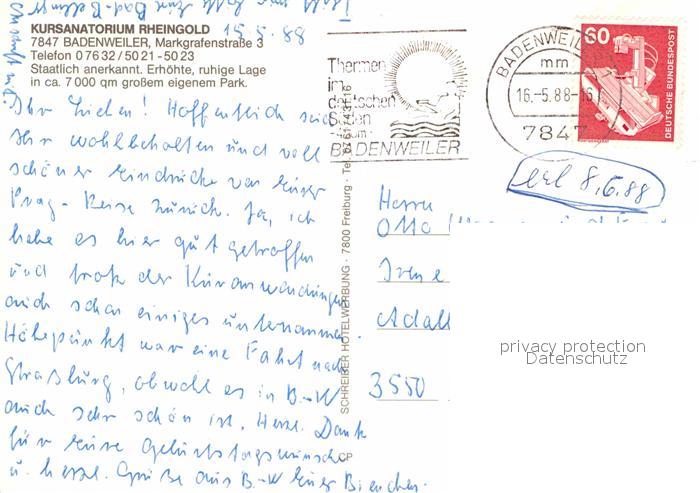 15.5.88
KURSANATORIUM RHEINGOLD
7847 BADENWEILER, Markgrafenstraße 3
Telefon 0 76 32 / 50 21 - 50 23
Staatlich anerkannt. Erhöhte, ruhige Lage
in ca. 7 000 qm großem eigenem Park.
Ihr Lieben! Hoffentlich seid
Ihr wohlbehalten und voll
schöner Eindrücke von Eurer
Prag-Reise zurück. Ja, ich
habe es hier gut getroffen
und trotz der Kuranwendungen
auch schon einiges unternommen.
Höhepunkt war eine Fahrt nach
Straßburg, obwohl es in B.-W
auch sehr schön ist. Herzl. Dank
für Eure Geburtstagswünsche
u. herzl. Grüße aus B.-W Euer Bienchen.
SCHREIBER HOTELWERBUNG · 7800 Freiburg · Tel. 0761/743116
CP
Thermen
im
deutschen
Süden
BADENWEILER
BADENWEILER
mm
16.-5.88-16
7847
60
DEUTSCHE BUNDESPOST
erl 8.6.88
Herrn
Otto
Irene
Adalb
3550
privacy protection
Datenschutz